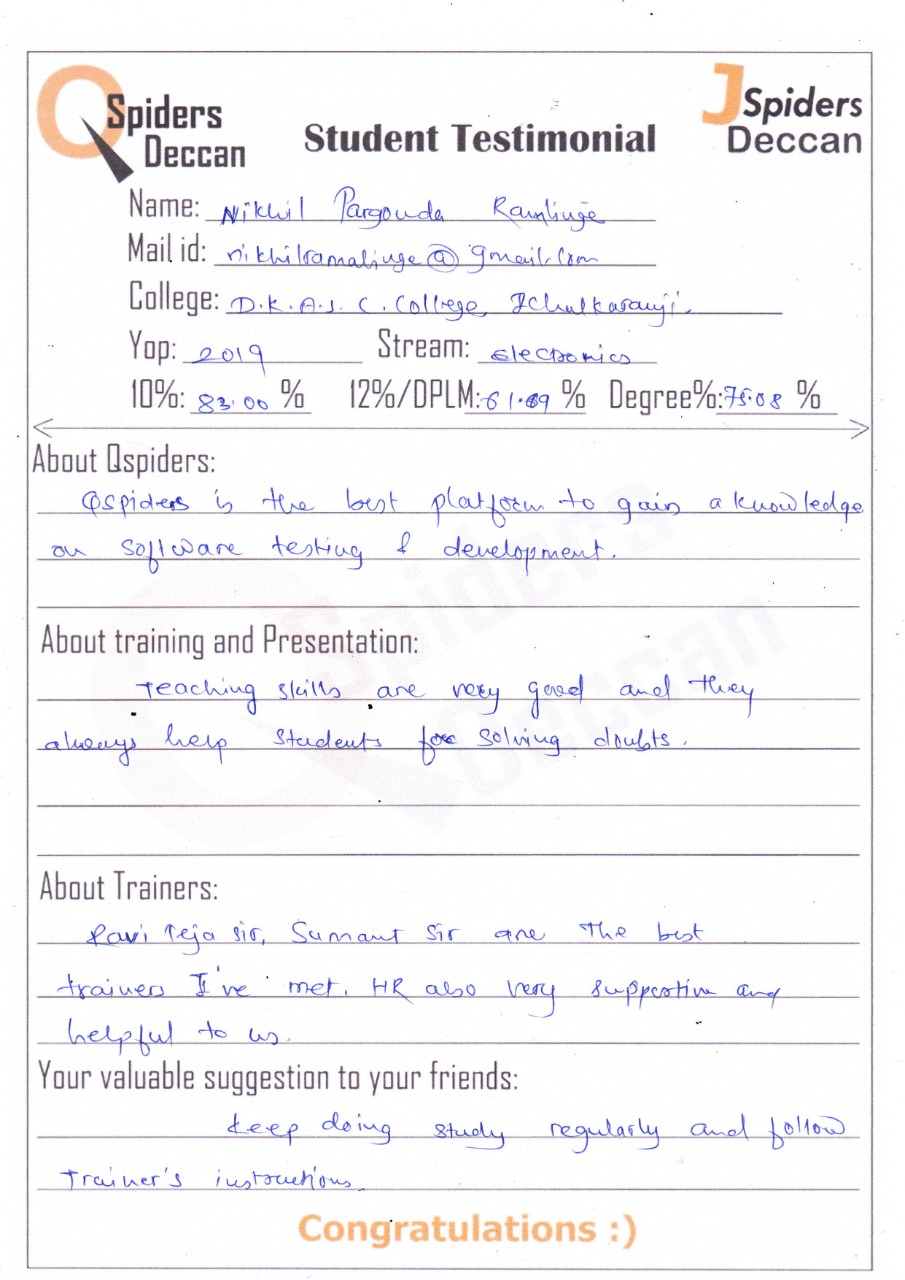 QSpiders Deccan
Student Testimonial
JSpiders Deccan
Name: Nikhil Pargouda Ramlinge
Mail id: nikhilramalinge@gmail.com
College: D.K.A.S.C. College, Ichalkaranji.
Yop: 2019 Stream: electronics
10%: 83.00 % 12%/DPLM: 61.69 % Degree%: 75.08 %
About Qspiders:
Qspiders is the best platform to gain a knowledge
on software testing & development.
About training and Presentation:
Teaching skills are very good and they
always help students for solving doubts.
About Trainers:
Ravi Teja sir, Sumant Sir are the best
trainers I've met. HR also very supportive and
helpful to us.
Your valuable suggestion to your friends:
keep doing study regularly and follow
trainer's instructions.
Congratulations :)